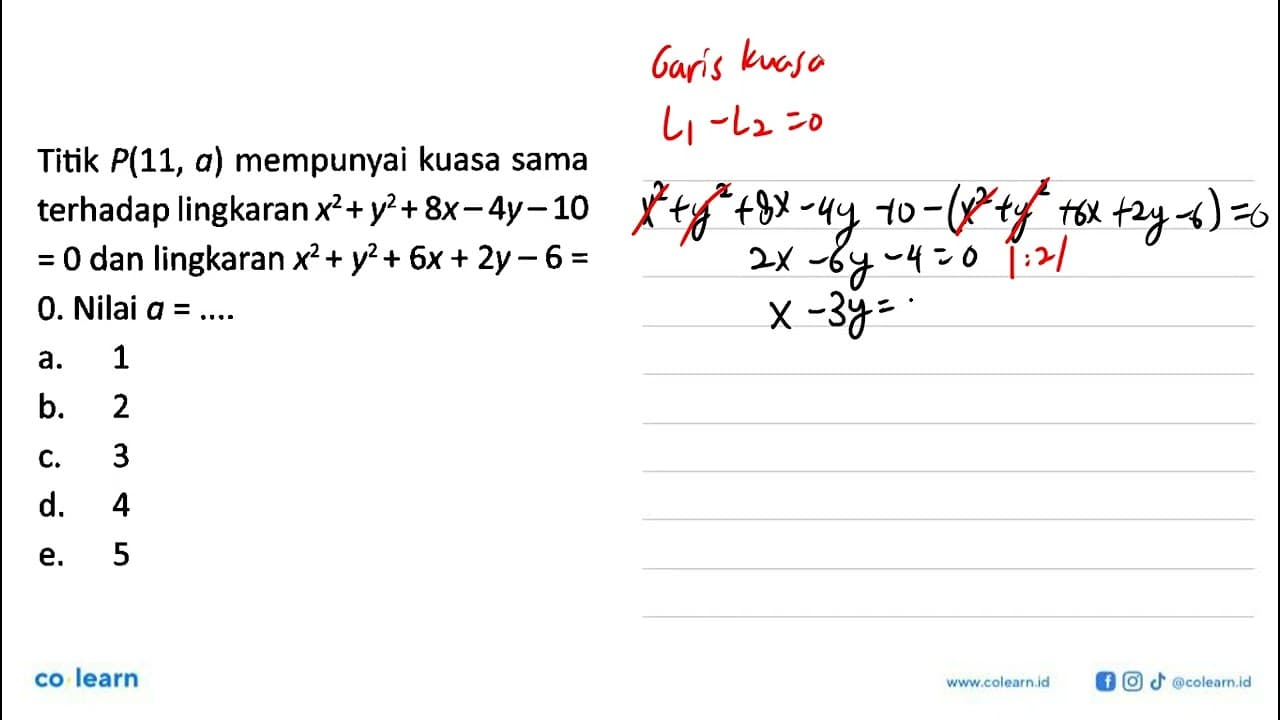 Titik P(11, a) mempunyai kuasa sama
terhadap lingkaran x² + y² + 8x – 4y – 10
= 0 dan lingkaran x² + y² + 6x + 2y – 6 =
0. Nilai a = ....
a. 1
b. 2
c. 3
d. 4
e. 5
Garis kuasa
L₁ - L₂ = 0
x² + y² + 8x - 4y - 10 - (x² + y² + 6x + 2y - 6) = 0
2x - 6y - 4 = 0 |:2|
x - 3y =
co learn
www.colearn.id
@colearn.id